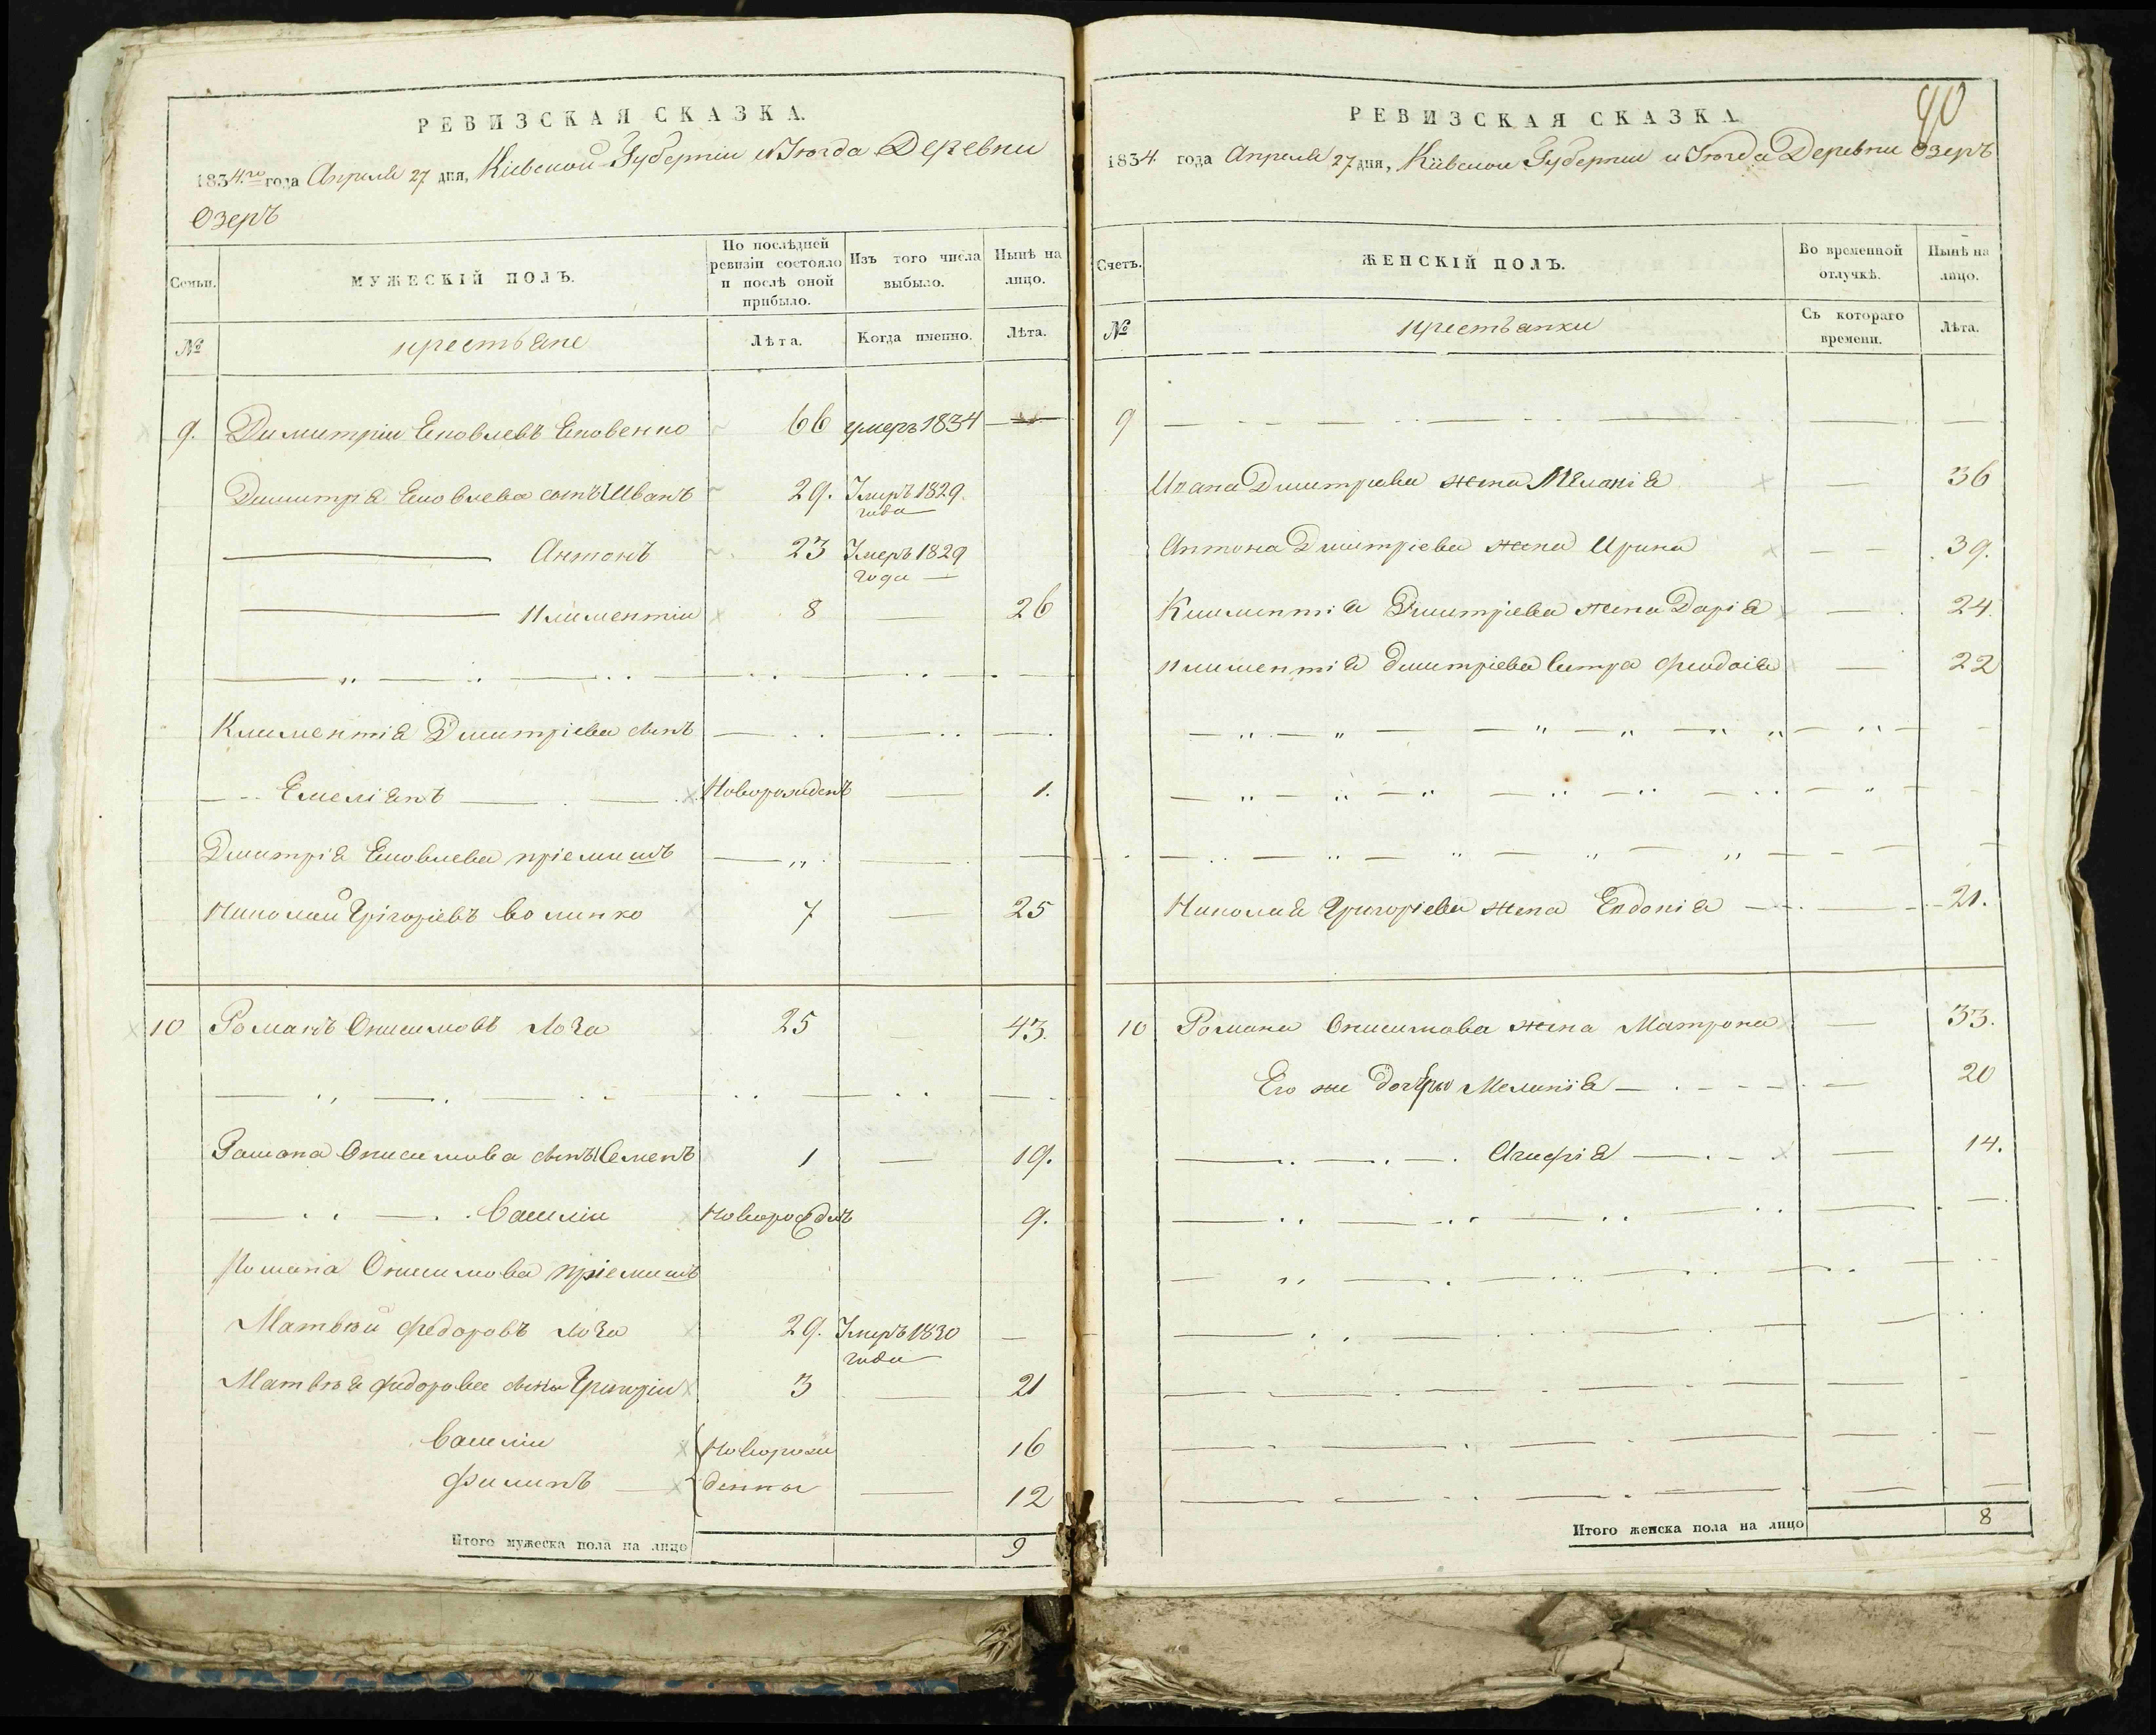 РЕВИЗСКАЯ СКАЗКА.
1834.го года Апреля 27 дня, Кіевской Губерніи и Уезда Деревни
Озеръ
Семьи.
МУЖЕСКІЙ ПОЛЪ.
По послѣдней ревизіи состояло и послѣ оной прибыло.
Изъ того числа выбыло.
Нынѣ на лицо.
№
крестьяне
Лѣта.
Когда именно.
Лѣта.
9. Димитрій Яковлевъ Яковенко 66 умеръ 1834
Димитрія Яковлева сынъ Иванъ 29. Умеръ 1829
года
Антонъ 23 Умеръ 1829
года
Климентій 8 — 26
Климентія Дмитріева сынъ
Емеліянъ Новорожденъ — 1.
Дмитрія Яковлева пріемышъ
Николай Григоріевъ 7 — 25
10 Романъ Онисимовъ Лоза 25 43.
Романа Онисимова сынъ Семенъ 1 — 19.
Василій Новорожденъ 9.
Романа Онисимова пріемышъ
Матвѣй Федоровъ Лоза 29. Умеръ 1830 —
года
Матвѣя Федорова сынъ Григорій 3 — 21
Василій Новорож 16
Филипъ денны — 12
Итого мужеска пола на лицо 9
90
РЕВИЗСКАЯ СКАЗКА
1834 года Апреля 27 дня, Кіевской Губерніи и Уезда Деревни Озеръ
Счетъ.
ЖЕНСКІЙ ПОЛЪ.
Во временной отлучкѣ.
Нынѣ на лицо.
№
крестьянки
Съ котораго времени.
Лѣта.
9
Ивана Дмитріева жена Меланія — 36
Антона Дмитріева жена Ирина — — 39.
Климентія Дмитріева жена Дарія — 24.
Климентія Дмитріева сестра Феодосія — 22
Николая Григоріева жена Евдокія — 21.
10 Романа Онисимова жена Матрона — 33.
Его же дочери Меланія — 20
Агафія — 14.
Итого женска пола на лицо 8